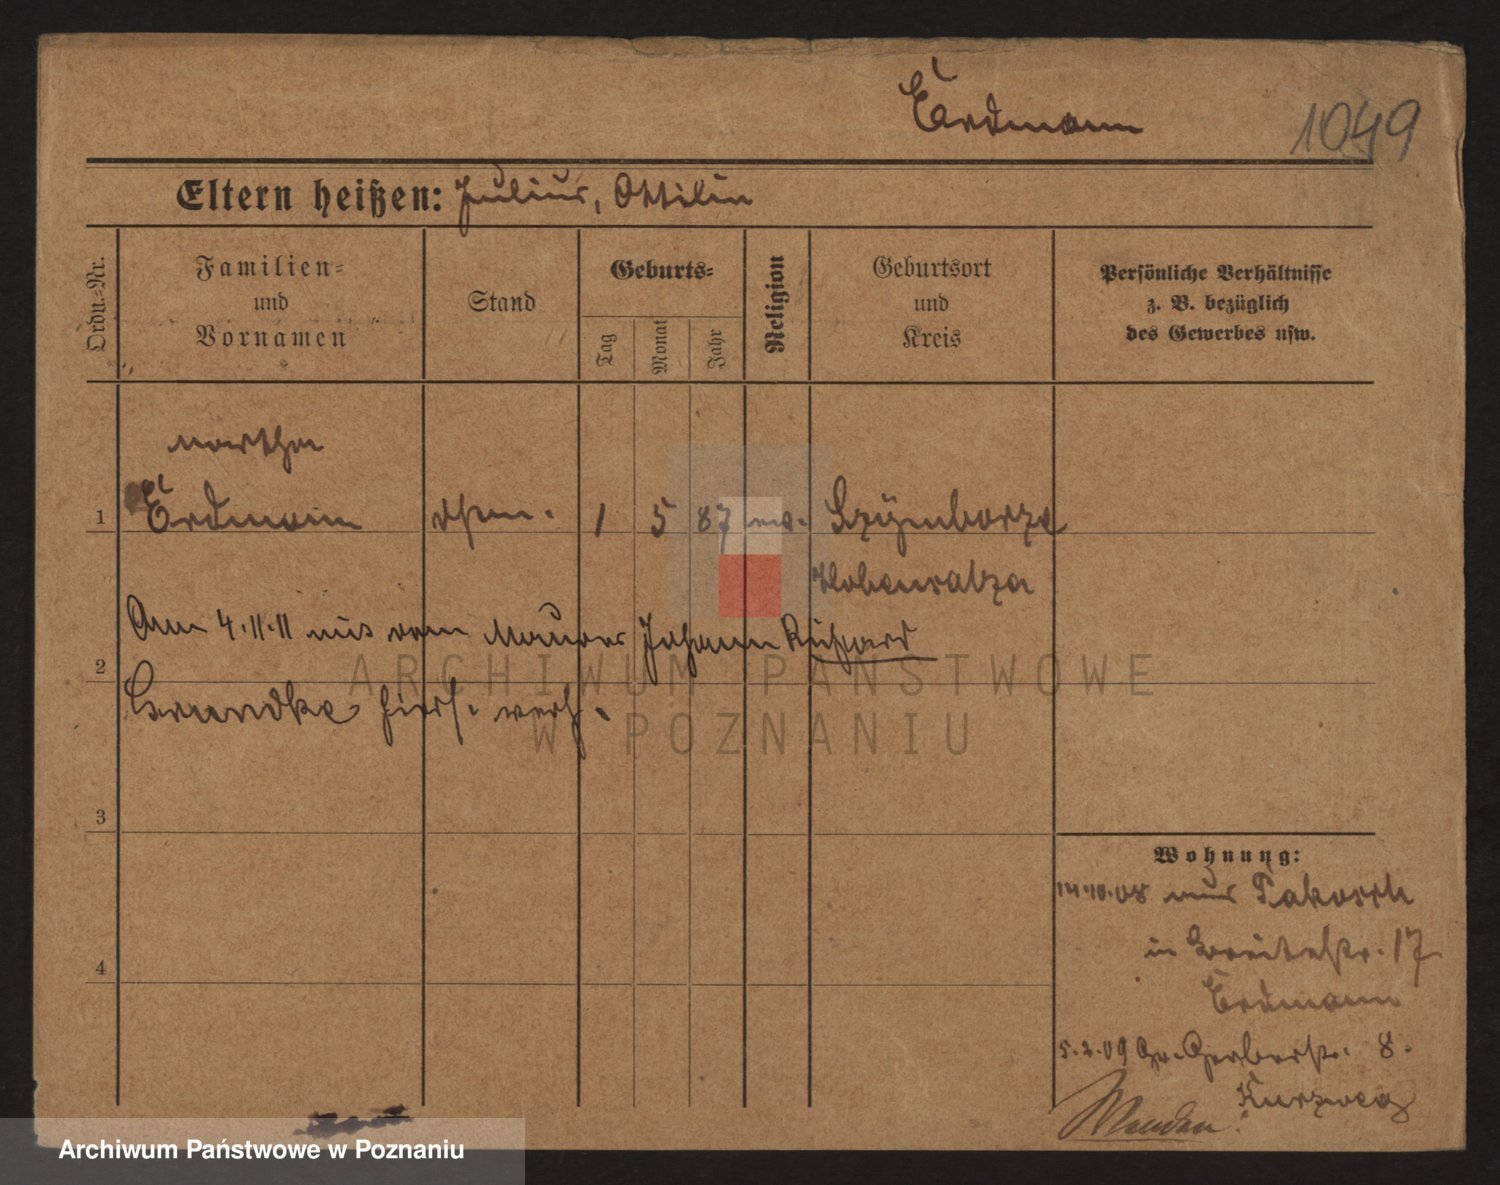 Erdmann
1049
Eltern heißen: Julius, Ottilin
Ordn.-Nr.
Familien-
und
Vornamen
Stand
Geburts-
Tag
Monat
Jahr
Religion
Geburtsort
und
Kreis
Persönliche Verhältnisse
z. B. bezüglich
des Gewerbes usw.
Martha
1 Erdmann 1 5 87
Hohensalza
Am 4.11.11 mit dem Maurer Johann
2
hies. verh.
3
4
Wohnung:
14.10.08 aus Pakosch
in Breitestr. 17
Erdmann
5.2.09 Gr. Gerberstr. 8.
Kurzweg
Wenden!
ARCHIWUM PAŃSTWOWE
W POZNANIU
Archiwum Państwowe w Poznaniu